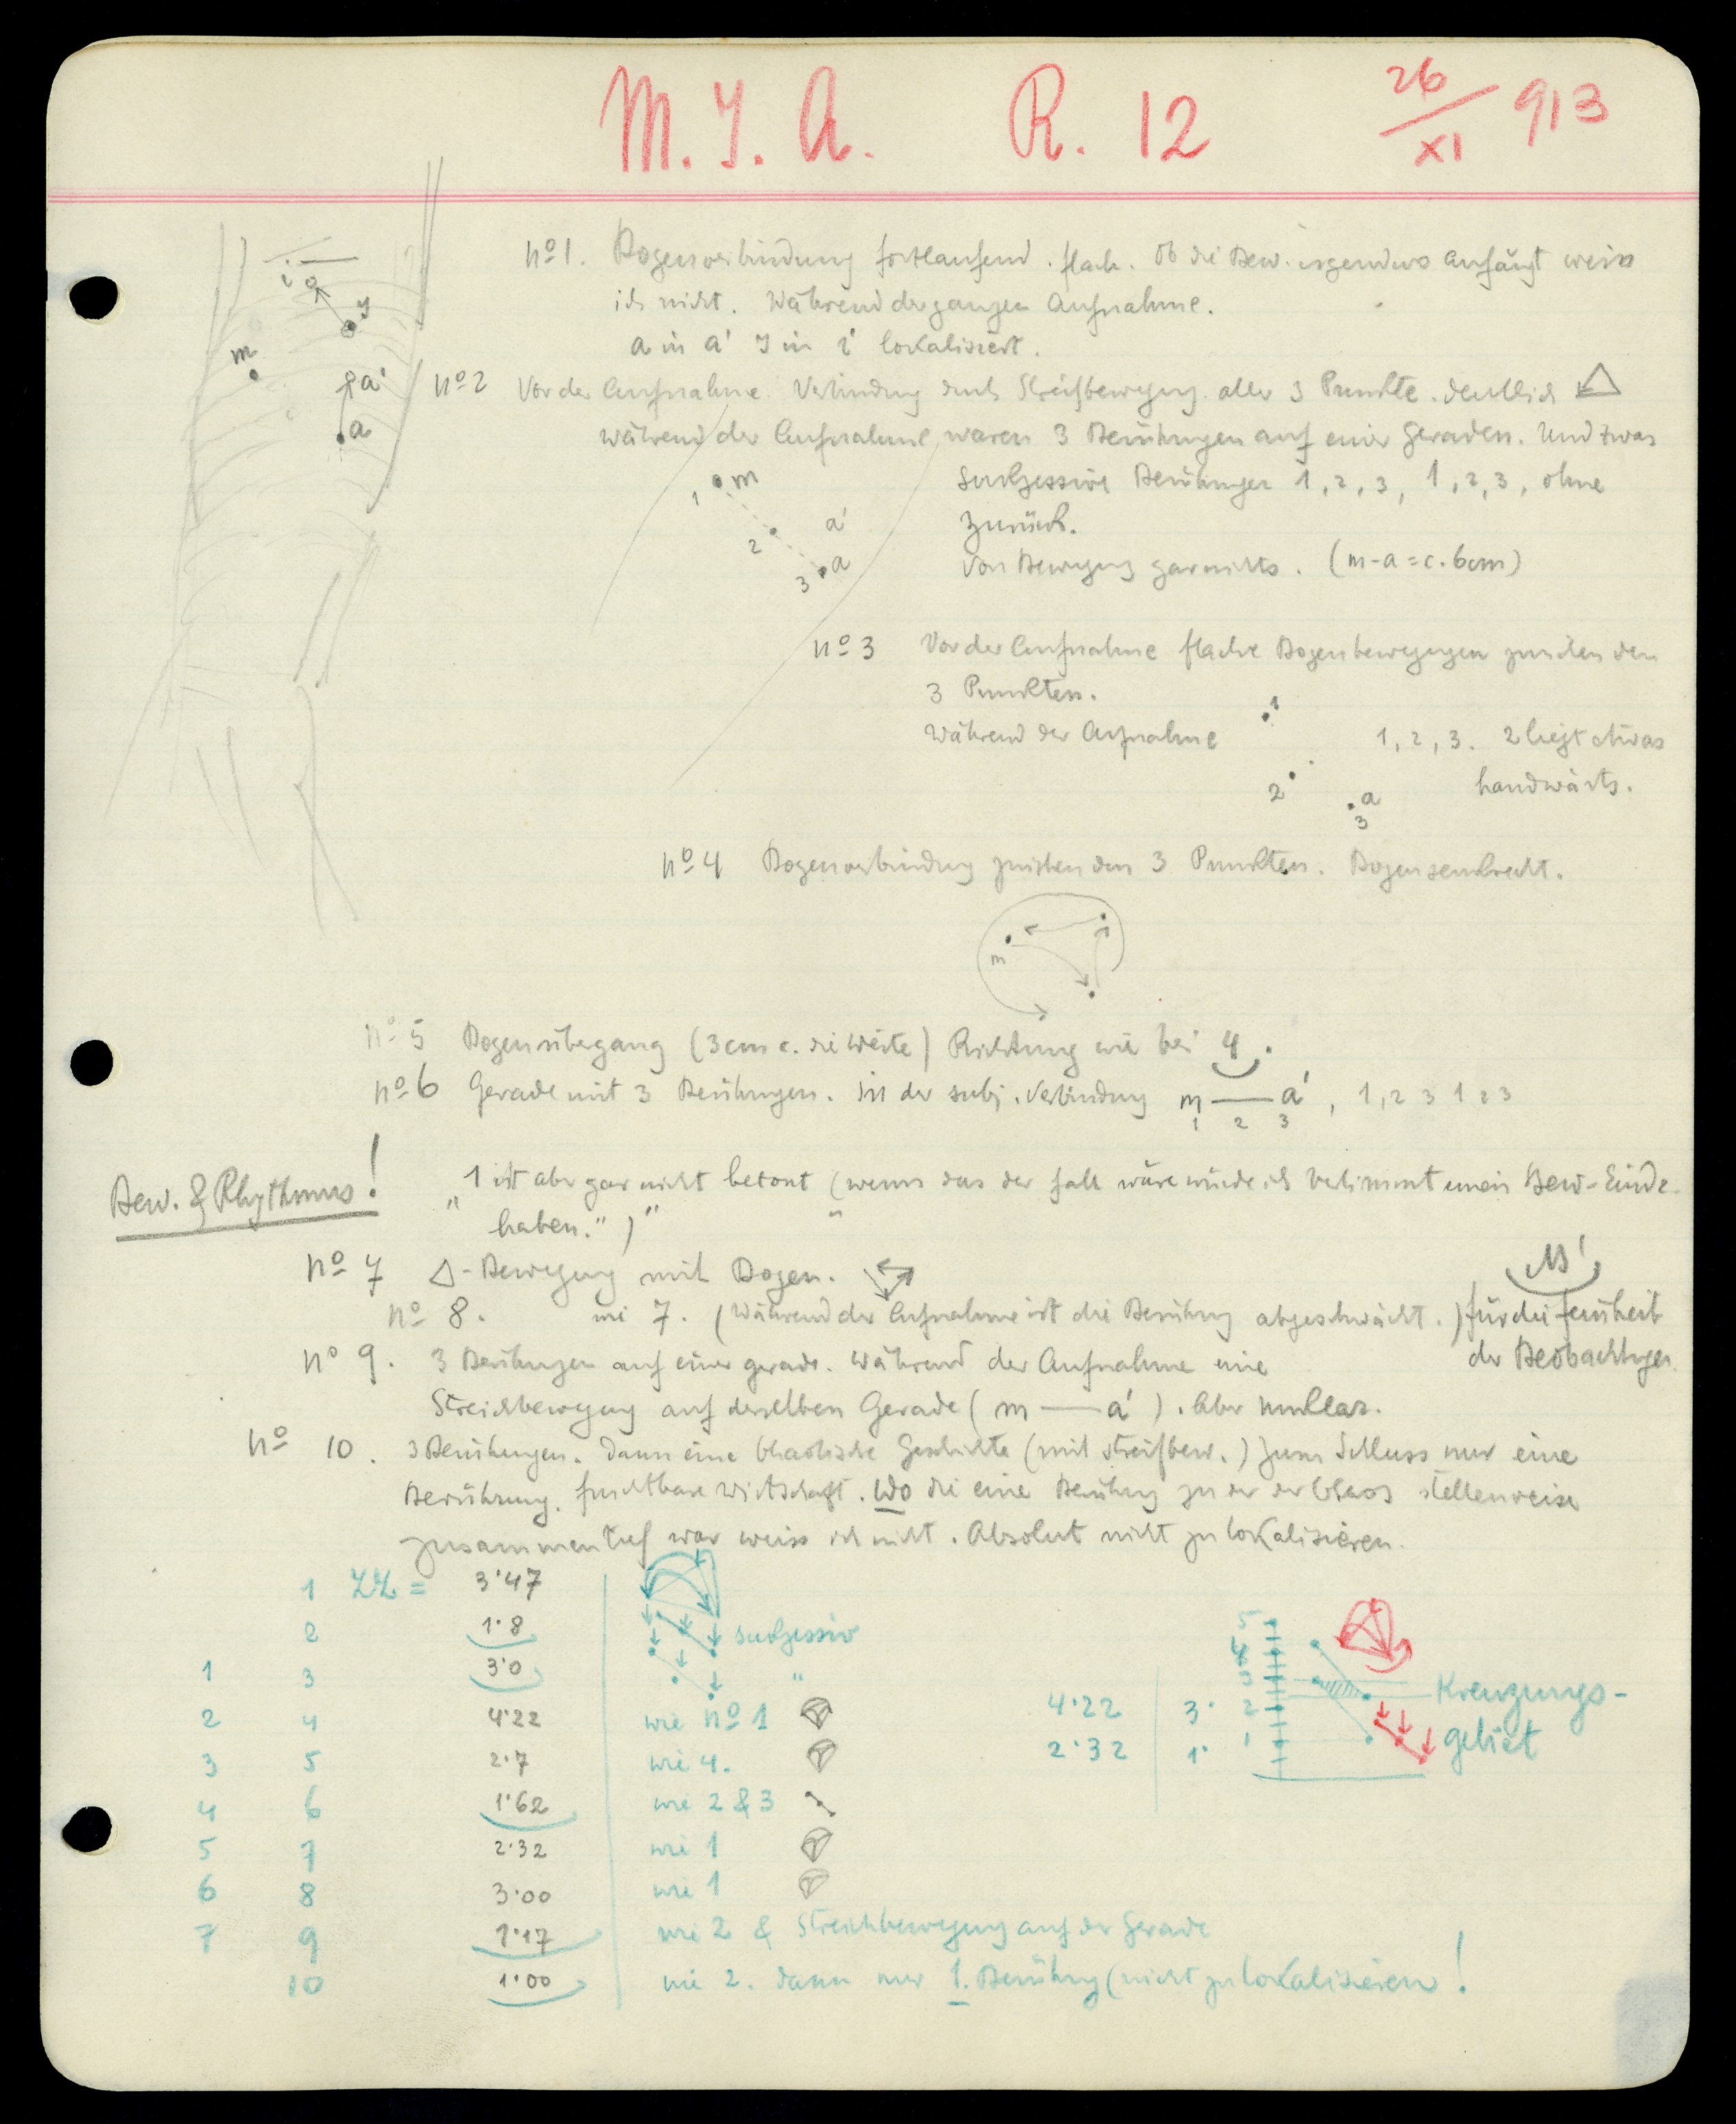 M. J. A. R. 12 26/XI 913
nº 1. Bogenverbindung fortlaufend. flach. Ob die Bew. irgendwo anfängt weiss
ich nicht. Während der ganzen Aufnahme.
a in a' J in i' lokalisiert.
i
J
m
a'
a
nº 2 Vor der Aufnahme Verbindung durch Streifbewegung aller 3 Punkte. deutlich
während der Aufnahme waren 3 Berührungen auf einer Geraden. Und zwar
sukzessive Berührungen 1, 2, 3, 1, 2, 3, ohne
zurück.
Von Bewegung garnichts. (m-a = c. 6cm)
1 m
2 a'
3 a
nº 3 Vor der Aufnahme flache Bogenbewegungen zwischen den
3 Punkten.
Während der Aufnahme 1, 2, 3. 2 liegt etwas
handwärts.
1
2
a
3
nº 4 Bogenverbindung zwischen den 3 Punkten. Bogen senkrecht.
m
nº 5 Bogenübergang (3cm c. die Weite) Richtung wie bei 4.
nº 6 Gerade mit 3 Berührungen. In der subj. Verbindung m — a', 1, 2 3 1 2 3
1 2 3
Bew. & Rhythmus!
"1 ist aber gar nicht betont (wenn das der Fall wäre würde ich bestimmt einen Bew-Eindr.
haben.")"
nº 7 △-Bewegung mit Bogen.
nº 8. wie 7. (Während der Aufnahme ist die Berührung abgeschwächt.) für die Feinheit
der Beobachtungen
nº 9. 3 Berührungen auf einer gerade. Während der Aufnahme eine
Streichbewegung auf derselben Gerade (m — a'). Aber unklar.
nº 10. 3 Berührungen. Dann eine chaotische Geschichte (mit Streifbew.) Zum Schluss nur eine
Berührung. furchtbare Wirtschaft. Wo die eine Berührung zu der der Chaos stellenweise
zusammenlief war weiss ich nicht. Absolut nicht zu lokalisieren.
1 ZZ = 3·47
2 1·8 sukzessiv
1 3 3·0 "
2 4 4·22 wie nº 1
3 5 2·7 wie 4.
4 6 1·62 wie 2 & 3
5 7 2·32 wie 1
6 8 3·00 wie 1
7 9 1·17 wie 2 & Streichbewegung auf der Gerade
10 1·00 wie 2. dann nur 1. Berührung (nicht zu lokalisieren!
4·22 3·
2·32 1·
5
4
3
2
1
Kreuzungs-
gebiet